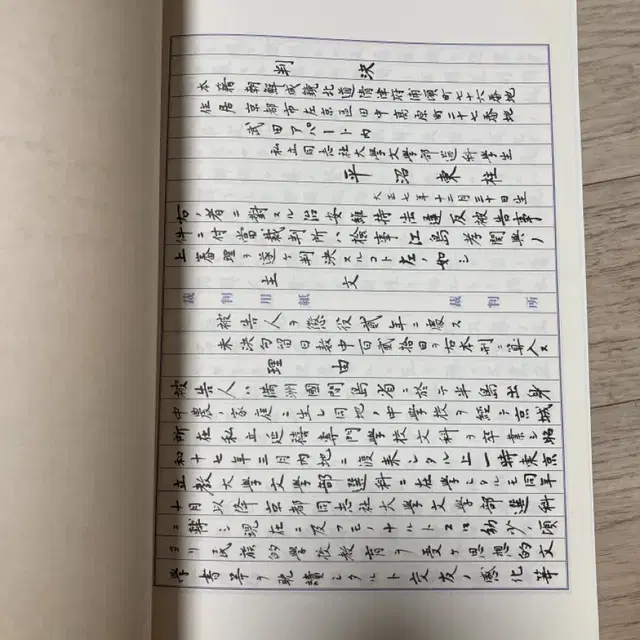 判決
本籍 朝鮮咸鏡北道清津府浦項町七十六番地
住居 京都市左京區田中高原町二十七番地
武田アパート内
私立同志社大學文學部選科學生
平沼東柱
大正七年十二月三十日生
右ノ者ニ對スル治安維持法違反被告事
件ニ付當裁判所ハ檢事江島孝關與ノ
上審理ヲ遂ケ判決スルコト左ノ如シ
主文
裁判用紙 裁判所
被告人ヲ懲役貳年ニ處ス
未決勾留日數中百貳拾日ヲ右本刑ニ算入ス
理由
被告人ハ滿洲國間島省ニ於テ半島出身
中農ノ家庭ニ生レ同地ノ中學校ヲ經テ京城
所在私立延禧專門學校文科ヲ卒業シ昭
和十七年三月内地ニ渡来シタル上一時東京
立教大學文學部選科ニ在學シタルモ同年
十月以降京都同志社大學文學部選科
ニ轉シ現在ニ及フモノナルトコロ幼少ノ頃
ヨリ民族的學校教育ヲ受ケ思想的文
學書等ヲ耽讀シタルト交友ノ感化等